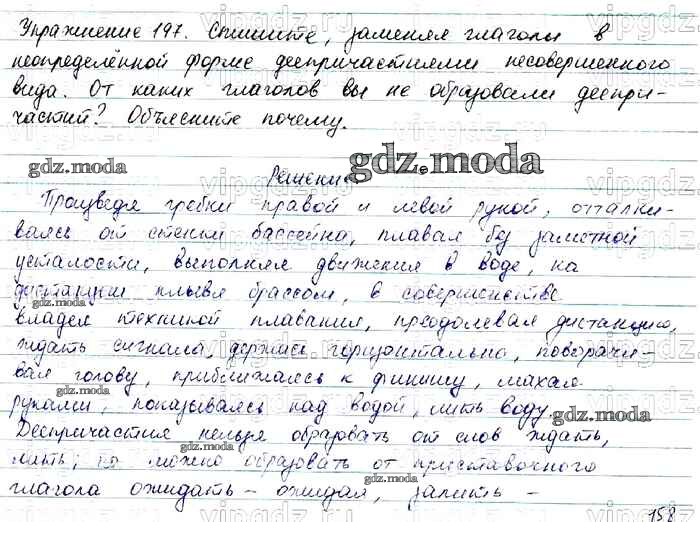 Упражнение 197. Спишите, заменяя глаголы в
неопределённой форме деепричастиями несовершенного
вида. От каких глаголов вы не образовали деепри-
частий? Объясните почему.
gdz.moda
gdz.moda
Решение
Произведя гребки правой и левой рукой, отталки-
ваясь от стенки бассейна, плавая без заметной
усталости, выполняя движения в воде, на
дистанции плывя брассом, в совершенстве
gdz.moda
владея техникой плавания, преодолевая дистанцию,
ждать сигнала, держась горизонтально, поворачи-
вая голову, приближаясь к финишу, махая
gdz.moda
руками, показываясь над водой, пить воду.
gdz.moda
Деепричастия нельзя образовать от слов ждать,
пить, но можно образовать от приставочного
глагола ожидать – ожидая, запить –
gdz.moda
158